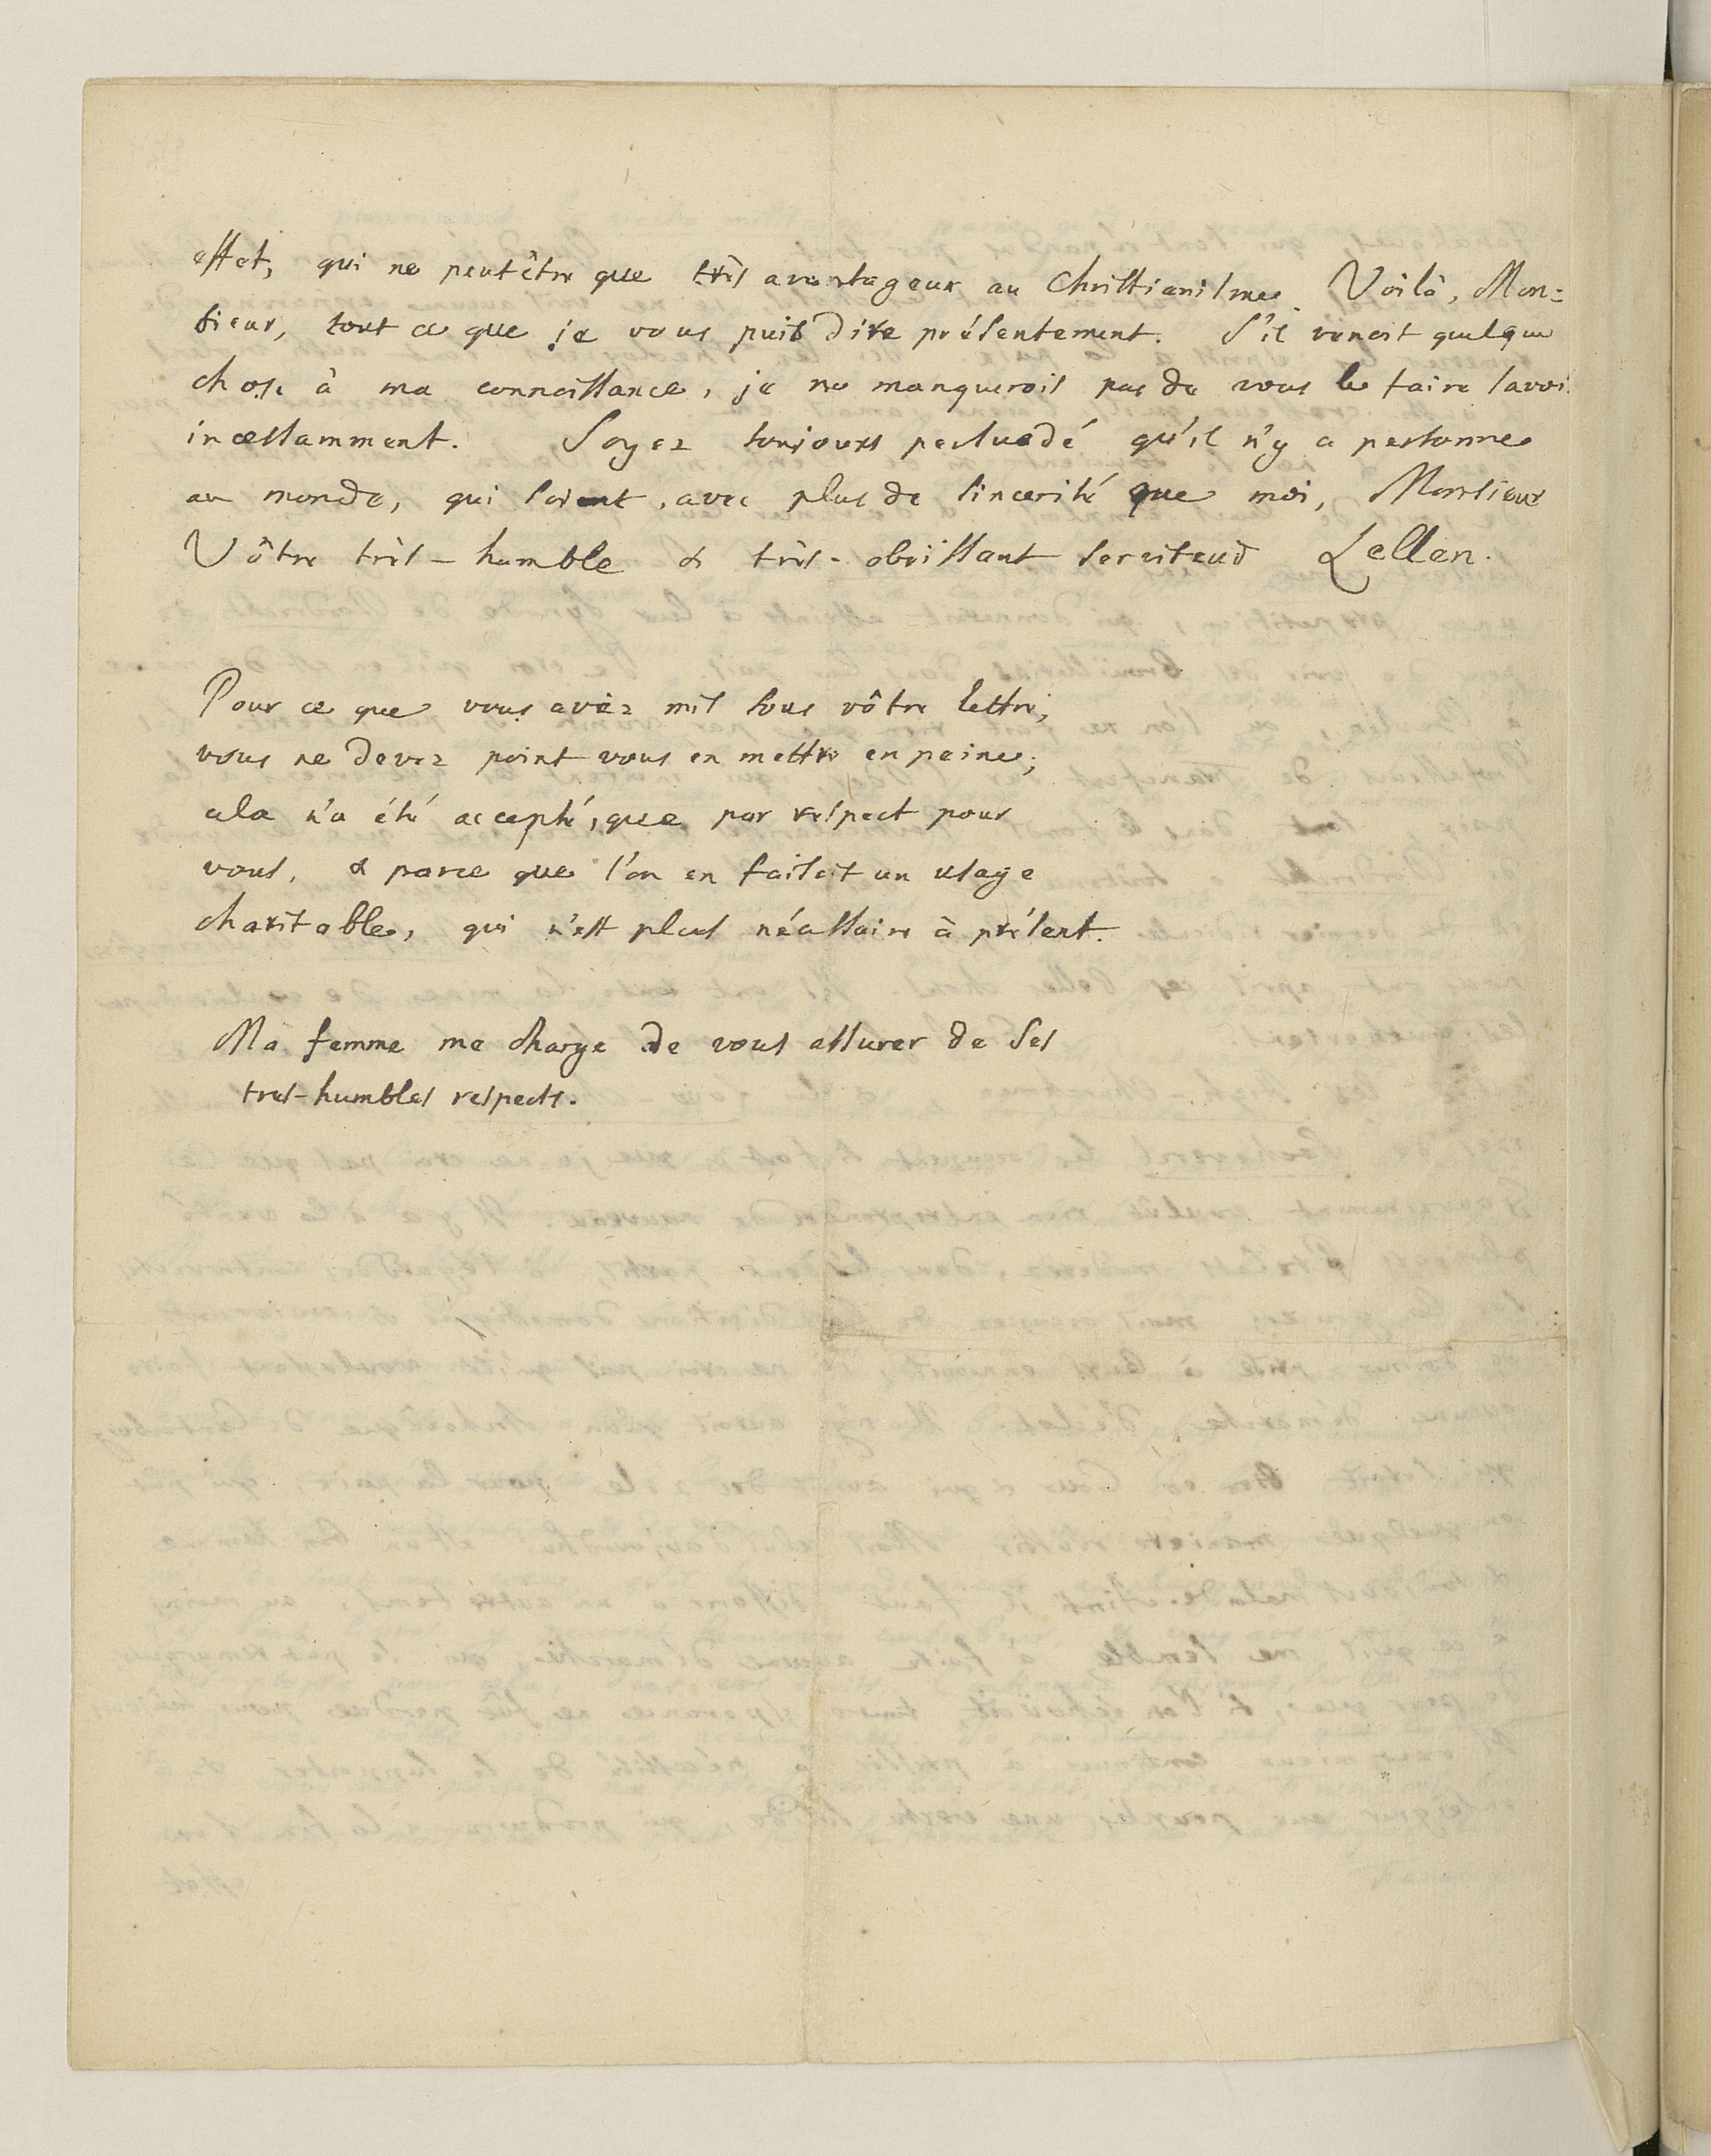 effet, qui ne peut être que très avantageux au Christianisme. Voilà, Mon=
sieur, tout ce que je vous puis dire présentement. S'il venoit quelque
chose à ma connoissance, je ne manquerois pas de vous le faire savoi
incessamment. Soyez toujours persuadé qu'il n'y a personne
au monde, qui soient, avec plus de sincerité que moi, Monsieur
Vôtre très-humble & très-obeïssant serviteur Lellen.
Pour ce que vous aviez mis sous vôtre lettre,
vous ne devez point vous en mettre en peine;
cela n'a été accepté, que par respect pour
vous, & parce que l'on en faisoit un usage
charitable, qui n'est plus nécessaire à présent.
Ma femme me charge de vous assurer de ses
tres-humbles respects.